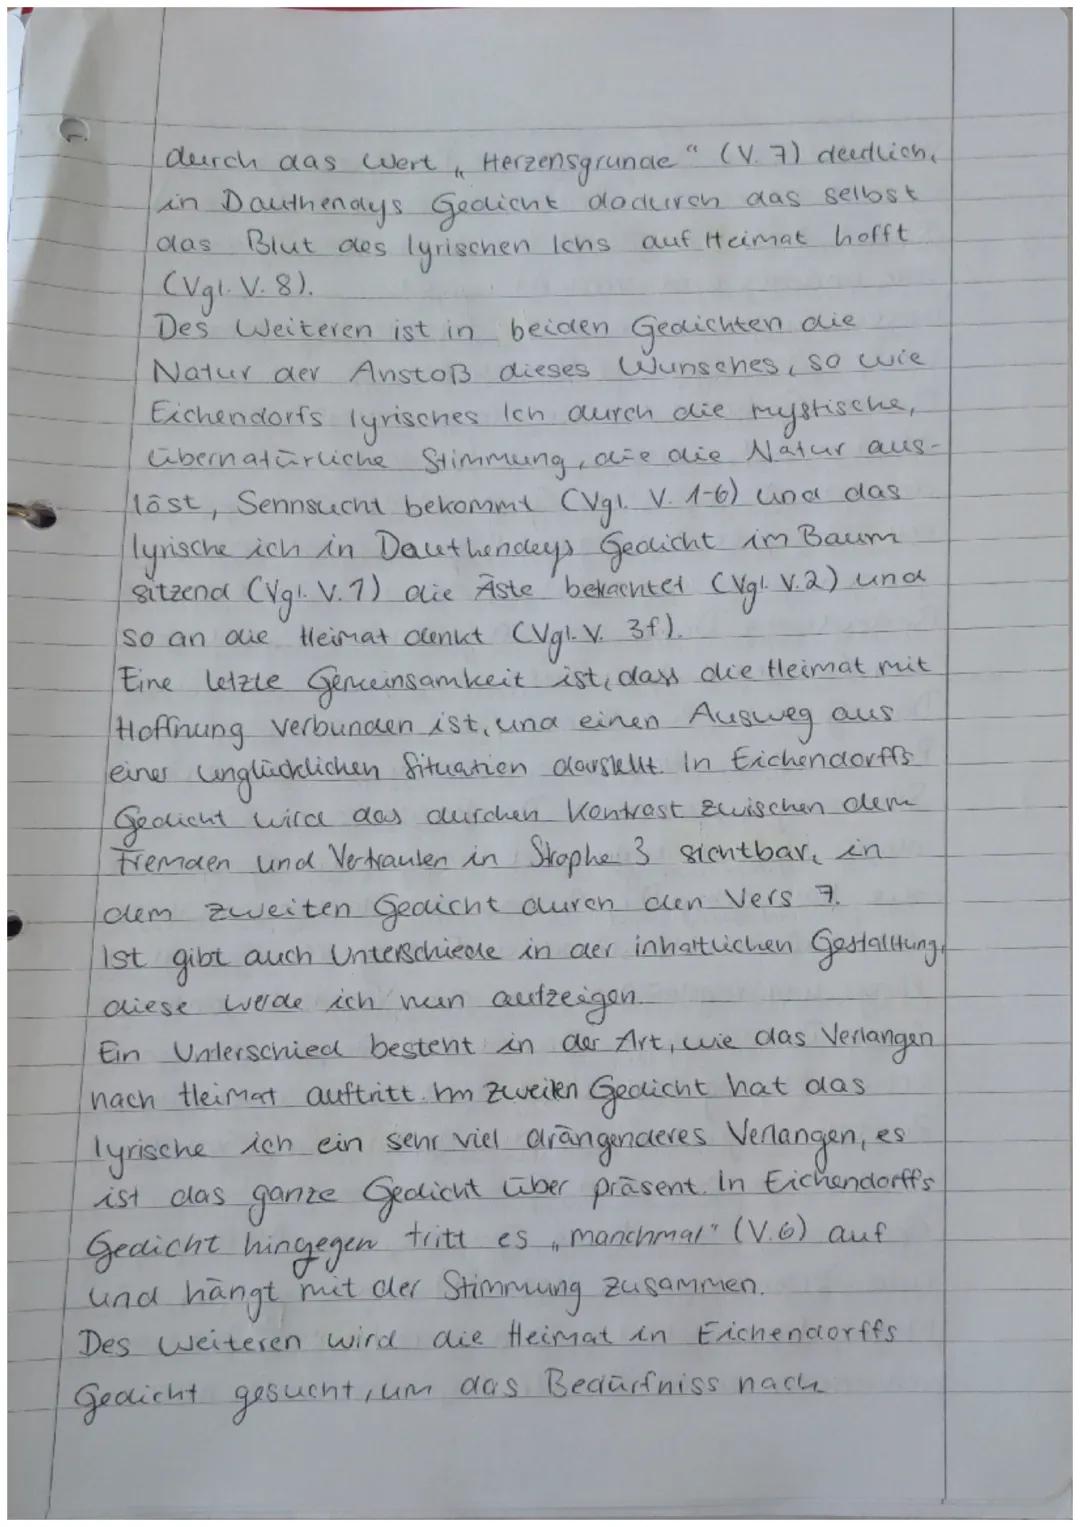 durch das Wert „Herzensgrunde“ (V. 7) deutlich,
in Dauthendys Gedicht dadurch das selbst
das Blut des lyrischen Ichs auf Heimat hofft
(Vgl. V. 8).
Des Weiteren ist in beiden Gedichten die
Natur der Anstoß dieses Wunsches, so wie
Eichendorfs lyrisches Ich durch die mystische,
übernatürliche Stimmung, die die Natur aus-
löst, Sennsucht bekommt (Vgl. V. 1-6) und das
lyrische ich in Dauthendeys Gedicht im Baum
sitzend (Vgl. V. 1) die Äste betrachtet (Vgl. V. 2) und
so an die Heimat denkt (Vgl. V. 3f).
Eine letzte Gemeinsamkeit ist, dass die Heimat mit
Hoffnung verbunden ist, und einen Ausweg aus
einer unglücklichen Situation darstellt. In Eichendorffs
Gedicht wird das durchen Kontrast zwischen dem
Fremden und Vertrauten in Strophe 3 sichtbar, in
dem zweiten Gedicht durch den Vers 7.
Ist gibt auch Unterschiede in der inhaltlichen Gestalltung,
diese werde ich nun aufzeigen.
Ein Unterschied besteht in der Art, wie das Verlangen
nach Heimat auftritt. Im zweiten Gedicht hat das
lyrische ich ein sehr viel drängenderes Verlangen, es
ist das ganze Gedicht über präsent. In Eichendorffs
Gedicht hingegen tritt es „manchmal“ (V. 6) auf
und hängt mit der Stimmung zusammen.
Des weiteren wird die Heimat in Eichendorffs
Gedicht gesucht, um das Bedürfniss nach